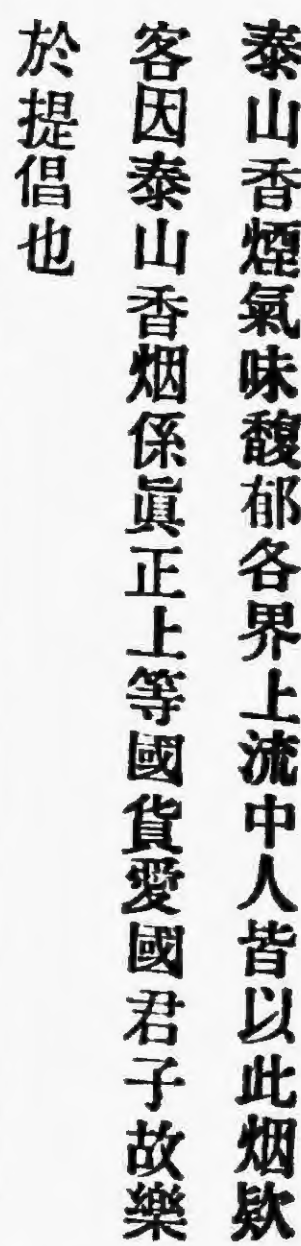 泰山香煙氣味馥郁各界上流中人皆以此烟欵
客因泰山香烟係眞正上等國貨愛國君子故樂
於提倡也